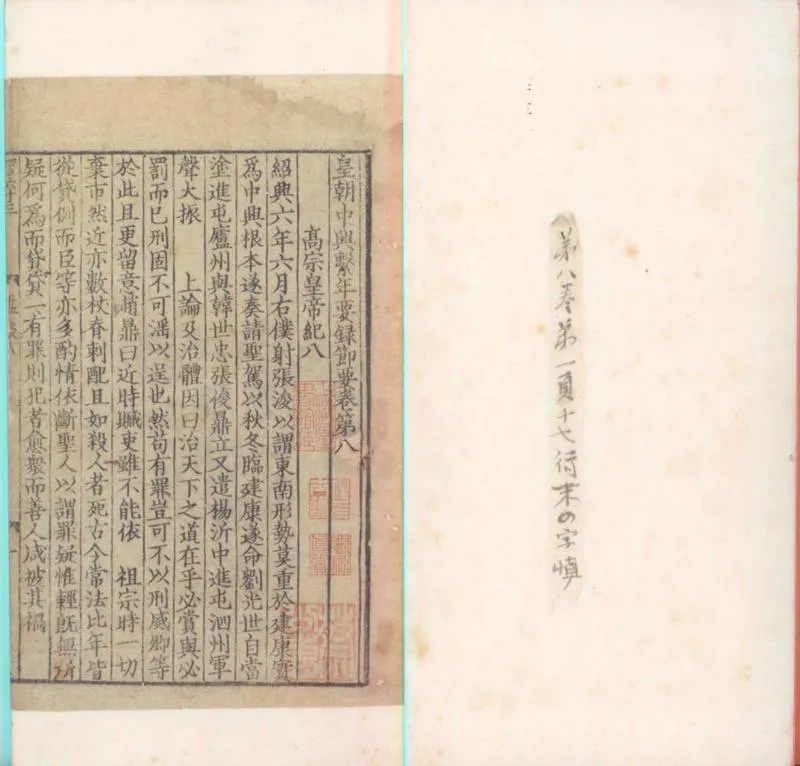 第八巻第一頁十七行末の字慎
皇朝中興繫年要録節要卷第八
高宗皇帝紀八
紹興六年六月右僕射張浚以謂東南形勢莫重於建康實
爲中興根本遂奏請聖駕以秋冬臨建康遂命劉光世自當
塗進屯廬州與韓世忠張俊鼎立又遣楊沂中進屯泗州軍
聲大振 上論及治體因曰治天下之道在乎必賞與必
罰而已刑固不可濫以逞也然苟有罪豈可不以刑威卿等
於此且更留意趙鼎曰近時贓吏雖不能依 祖宗時一切
棄市然近亦數杖脊刺配且如殺人者死古今常法比年皆
從貸例而臣等亦多酌情依斷聖人以謂罪疑惟輕旣無所
疑何爲而貸貸一有罪則犯者愈衆而善人咸被其禍